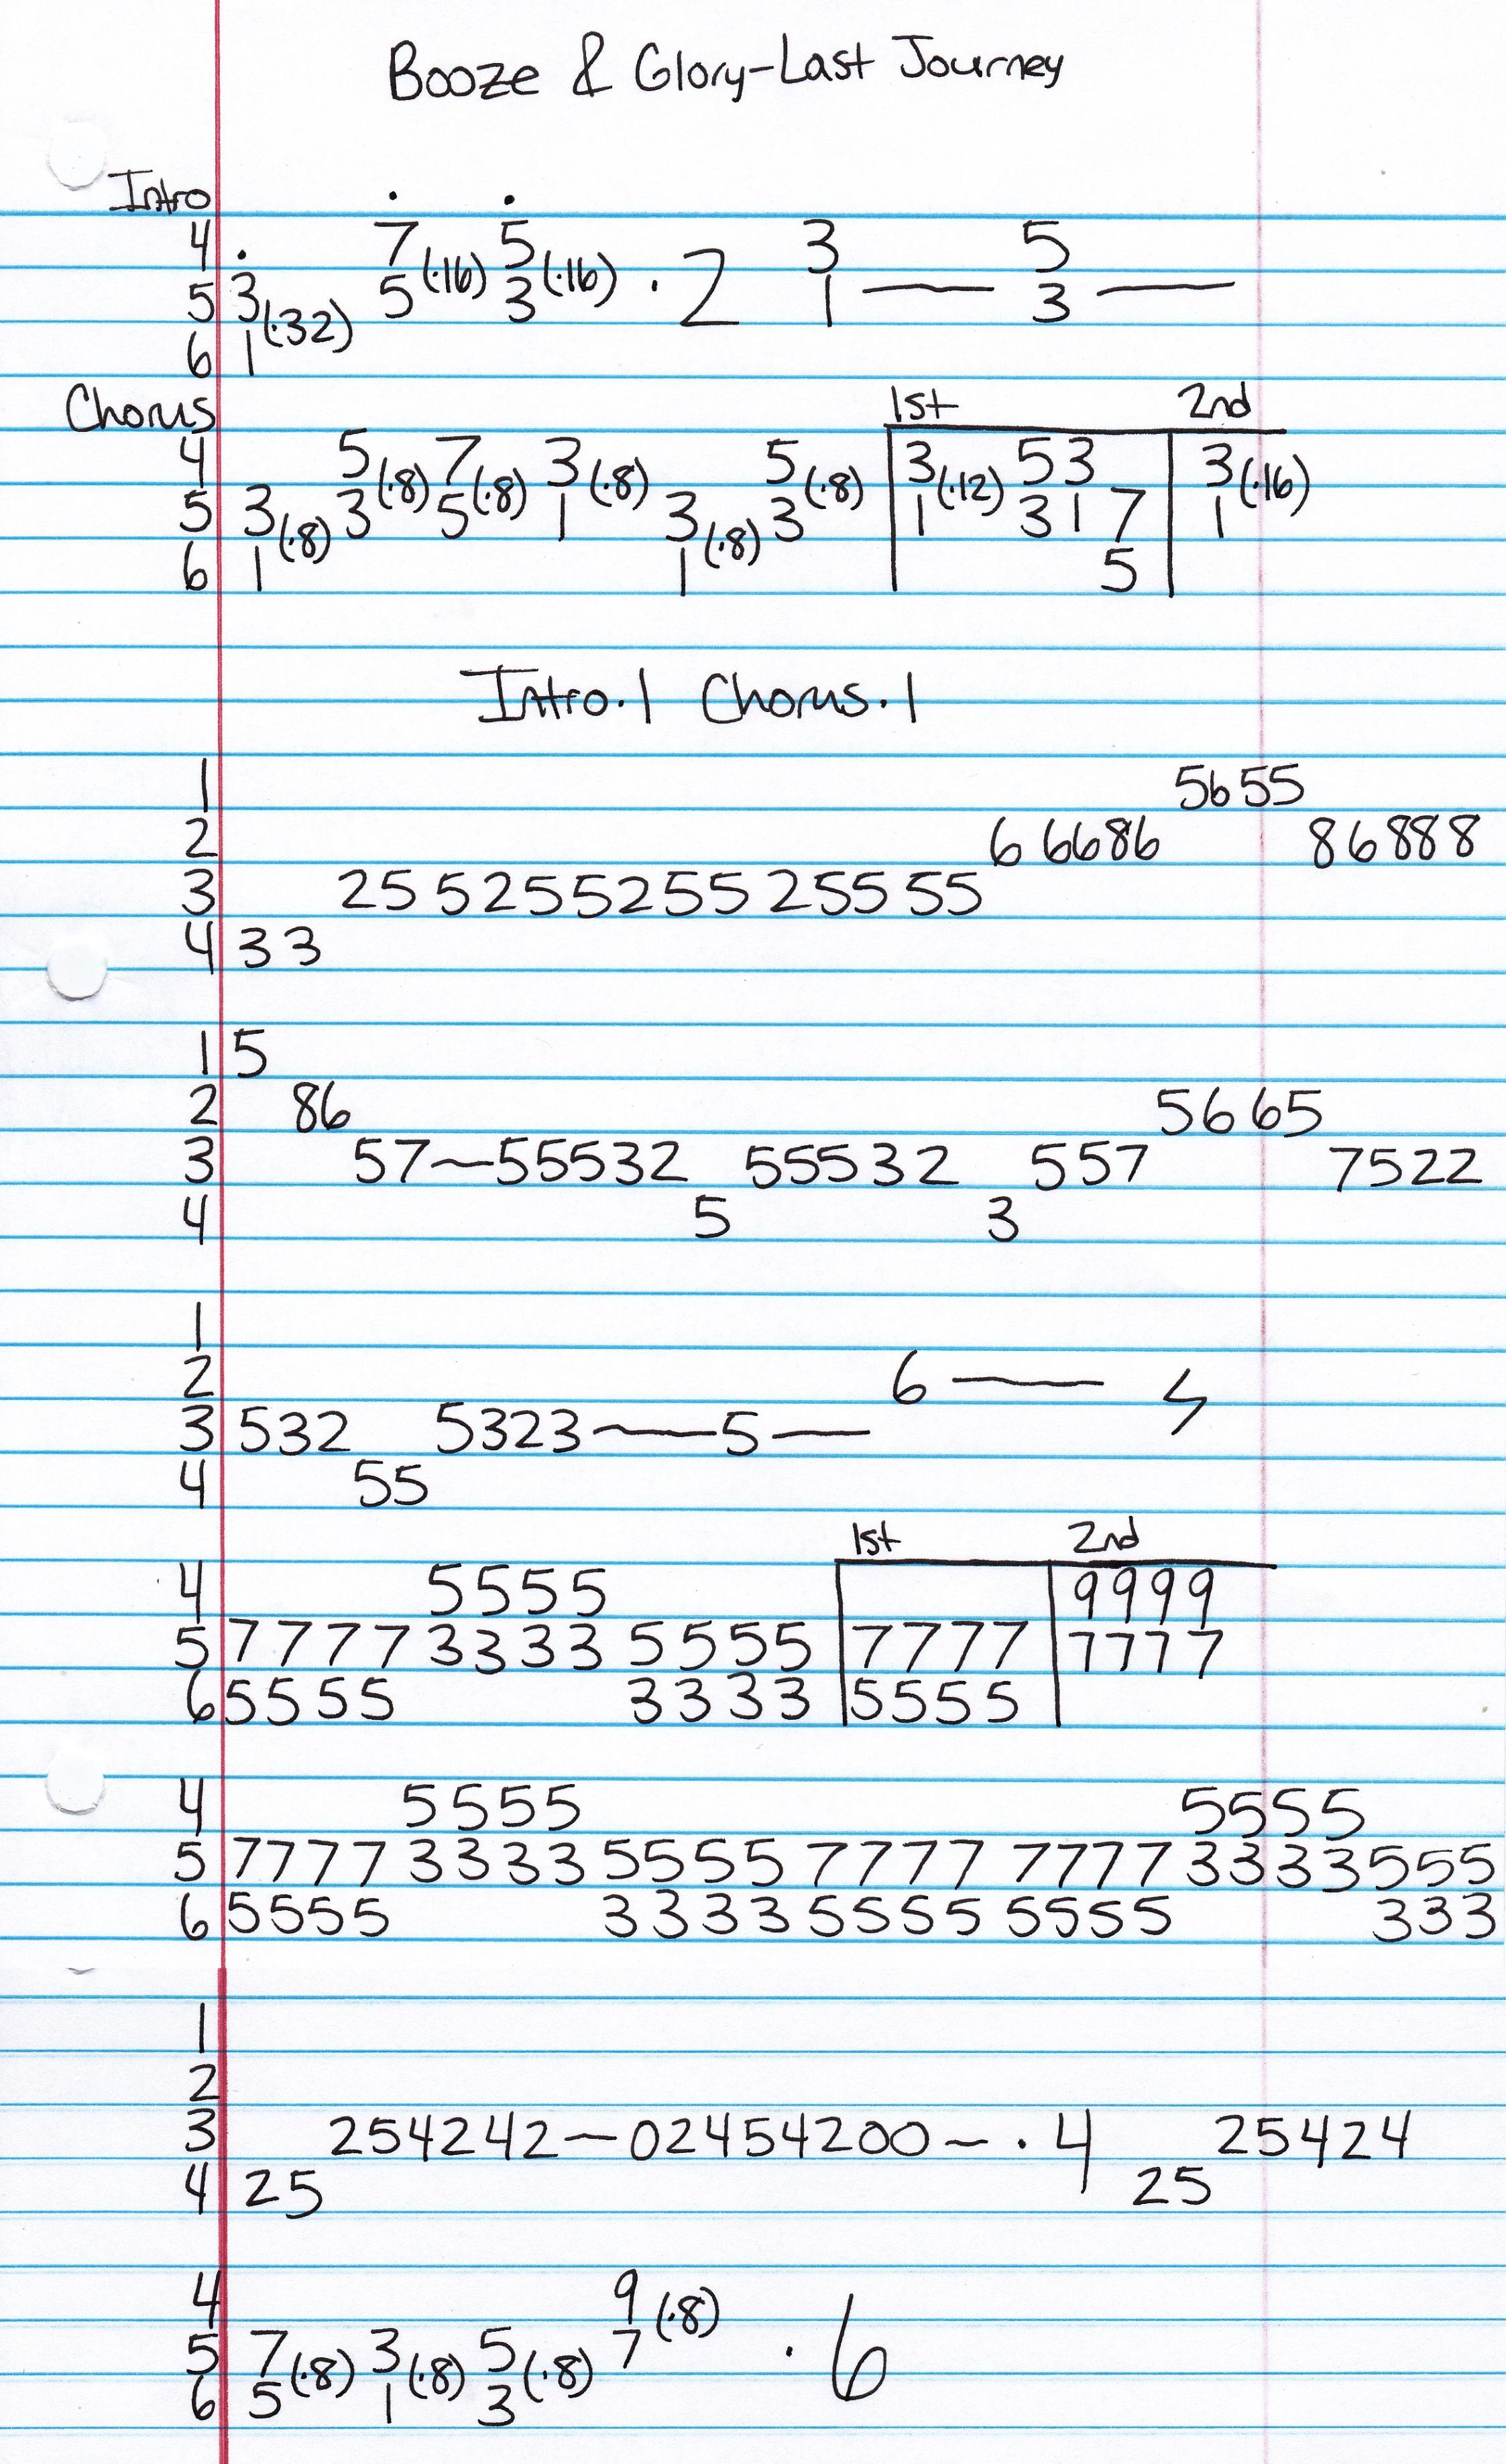 Booze & Glory-Last Journey
Intro
. .
4 . 7 5 3 5
5 3 (.32) 5 (.16) 3 (.16) . 2 1 — 3 —
6 1
Chorus 1st 2nd
4 5 (.8) 7 (.8) 3 (.8) 5 (.8) 3 (.12) 5 3 3 (.16)
5 3 (.8) 3 5 1 3 (.8) 3 1 3 1 7 1
6 1 1 5
Intro.1 Chorus.1
1 5655
2 6 6686 86888
3 25 5255255 2555 55
4 33
1 5
2 86 56 65
3 57~55532 55532 557 7522
4 5 3
1
2 6 — 4
3 532 5323~5—
4 55
1st 2nd
4 5555 9999
5 7777 3333 5555 7777 7777
6 5555 3333 5555
4 5555 5555
5 7777 3333 5555 7777 7777 3333 555
6 5555 3333 5555 5555 333
1
2
3 254242—02454200~ . 4 25424
4 25 25
4 9 (.8)
5 7 (.8) 3 (.8) 5 (.8) 7 . 6
6 5 1 3